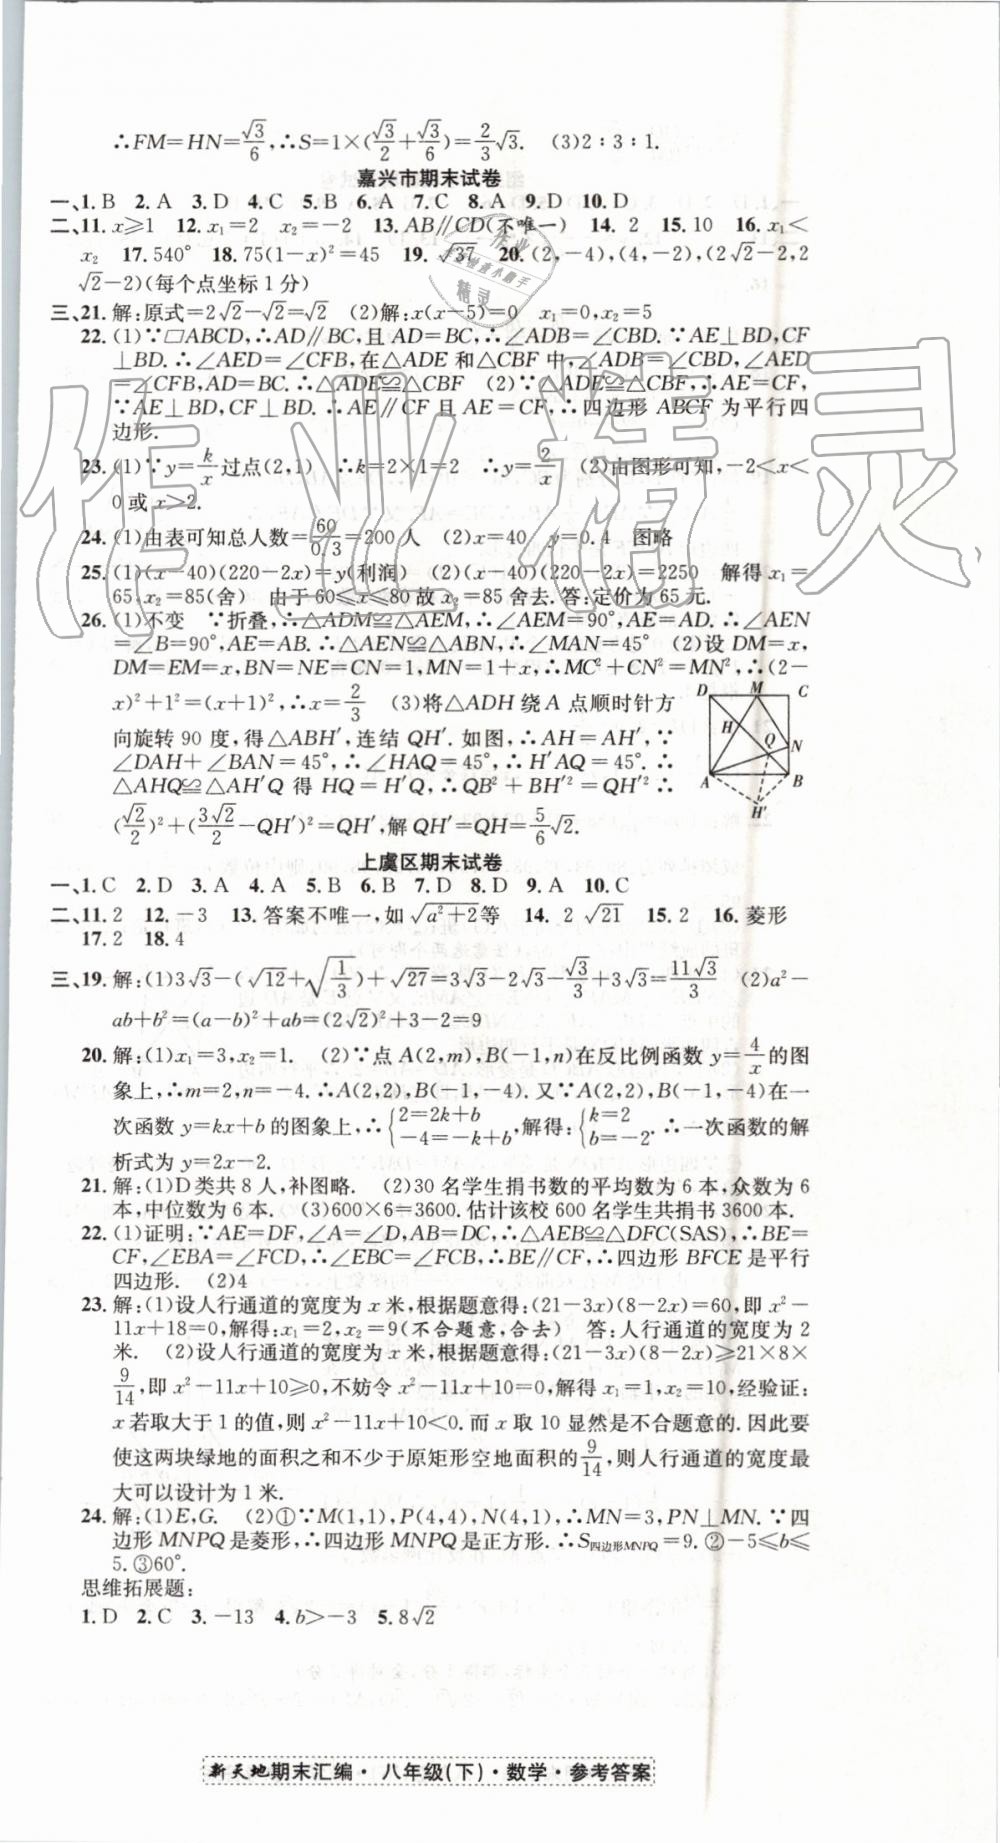 ∴FM=HN=√3/6,∴S=1×(√3/2+√3/6)=2/3√3.  (3)2∶3∶1.
嘉兴市期末试卷
一、1.B  2.A  3.D  4.C  5.B  6.A  7.C  8.A  9.D  10.D
二、11.x≥1  12.x₁=2  x₂=-2  13.AB∥CD(不唯一)  14.2  15.10  16.x₁<
x₂  17.540°  18.75(1-x)²=45  19.√37  20.(2,-4),(4,-2),(2√2-2,2
√2-2)(每个点坐标1分)
三、21.解:原式=2√2-√2=√2  (2)解:x(x-5)=0  x₁=0,x₂=5
22.(1)∵□ABCD,∴AD∥BC,且AD=BC,∴∠ADB=∠CBD.∵AE⊥BD,CF
⊥BD.∴∠AED=∠CFB,在△ADE和△CBF中,∠ADB=∠CBD,∠AED
=∠CFB,AD=BC.∴△ADE≌△CBF  (2)∵△ADE≌△CBF,∴AE=CF,
∵AE⊥BD,CF⊥BD.∴AE∥CF且AE=CF,∴四边形ABCF为平行四
边形.
23.(1)∵y=k/x过点(2,1)  ∴k=2×1=2  ∴y=2/x  (2)由图形可知,-2<x<
0或x>2.
24.(1)由表可知总人数=60/0.3=200人  (2)x=40  y=0.4  图略
25.(1)(x-40)(220-2x)=y(利润)  (2)(x-40)(220-2x)=2250  解得x₁=
65,x₂=85(舍)  由于60≤x≤80故x₂=85舍去.答:定价为65元.
26.(1)不变  ∵折叠,∴△ADM≌△AEM,∴∠AEM=90°,AE=AD.∴∠AEN
=∠B=90°,AE=AB.∴△AEN≌△ABN,∴∠MAN=45°  (2)设DM=x,
DM=EM=x,BN=NE=CN=1,MN=1+x,∴MC²+CN²=MN²,∴(2-
x)²+1²=(x+1)²,∴x=2/3  (3)将△ADH绕A点顺时针方
向旋转90度,得△ABH′,连结QH′.如图,∴AH=AH′,∵
∠DAH+∠BAN=45°,∴∠HAQ=45°,∴∠H′AQ=45°.∴
△AHQ≌△AH′Q得HQ=H′Q,∴QB²+BH′²=QH′²∴
(√2/2)²+(3√2/2-QH′)²=QH′²,解QH′=QH=5/6√2.
D M C
H
Q N
A B
H′
上虞区期末试卷
一、1.C  2.D  3.A  4.A  5.B  6.B  7.D  8.D  9.A  10.C
二、11.2  12.-3  13.答案不唯一,如√(a²+2)等  14.2√21  15.2  16.菱形
17.2  18.4
三、19.解:(1)3√3-(√12+√(1/3))+√27=3√3-2√3-√3/3+3√3=11√3/3  (2)a²-
ab+b²=(a-b)²+ab=(2√2)²+3-2=9
20.解:(1)x₁=3,x₂=1.  (2)∵点A(2,m),B(-1,n)在反比例函数y=4/x的图
象上,∴m=2,n=-4.∴A(2,2),B(-1,-4).又∵A(2,2),B(-1,-4)在一
次函数y=kx+b的图象上,∴{2=2k+b -4=-k+b,解得:{k=2 b=-2.∴一次函数的解
析式为y=2x-2.
21.解:(1)D类共8人,补图略.  (2)30名学生捐书数的平均数为6本,众数为6
本,中位数为6本.  (3)600×6=3600.估计该校600名学生共捐书3600本.
22.(1)证明:∵AE=DF,∠A=∠D,AB=DC,∴△AEB≌△DFC(SAS),∴BE=
CF,∠EBA=∠FCD,∴∠EBC=∠FCB,∴BE∥CF,∴四边形BFCE是平行
四边形.  (2)4
23.解:(1)设人行通道的宽度为x米,根据题意得:(21-3x)(8-2x)=60,即x²-
11x+18=0,解得:x₁=2,x₂=9(不合题意,舍去)  答:人行通道的宽度为2
米.  (2)设人行通道的宽度为x米,根据题意得:(21-3x)(8-2x)≥21×8×
9/14,即x²-11x+10≥0,不妨令x²-11x+10=0,解得x₁=1,x₂=10,经验证:
x若取大于1的值,则x²-11x+10<0.而x取10显然是不合题意的.因此要
使这两块绿地的面积之和不少于原矩形空地面积的9/14,则人行通道的宽度最
大可以设计为1米.
24.解:(1)E,G.  (2)①∵M(1,1),P(4,4),N(4,1),∴MN=3,PN⊥MN.∵四
边形MNPQ是菱形,∴四边形MNPQ是正方形.∴S四边形MNPQ=9.②-5≤b≤
5.③60°.
思维拓展题:
1.D  2.C  3.-13  4.b>-3  5.8√2
新天地期末汇编·八年级(下)·数学·参考答案
作业精灵